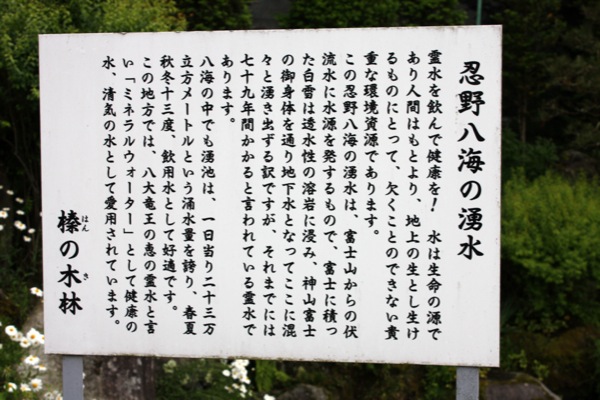 忍野八海の湧水
霊水を飲んで健康を! 水は生命の源で
あり人間はもとより、地上の生とし生け
るものにとって、欠くことのできない貴
重な環境資源であります。
この忍野八海の湧水は、富士山からの伏
流水に水源を発するもので、富士に積っ
た白雪は透水性の溶岩に浸み、神山富士
の御身体を通り地下水となってここに混
々と湧き出ずる訳ですが、それまでには
七十九年間かかると言われている霊水で
あります。
八海の中でも湧池は、一日当り二十三万
立方メートルという涌水量を誇り、春夏
秋冬十三度、飲用水として好適です。
この地方では、八大竜王の恵の霊水と言
い「ミネラルウォーター」として健康の
水、清気の水として愛用されています。
榛の木林
はん さ